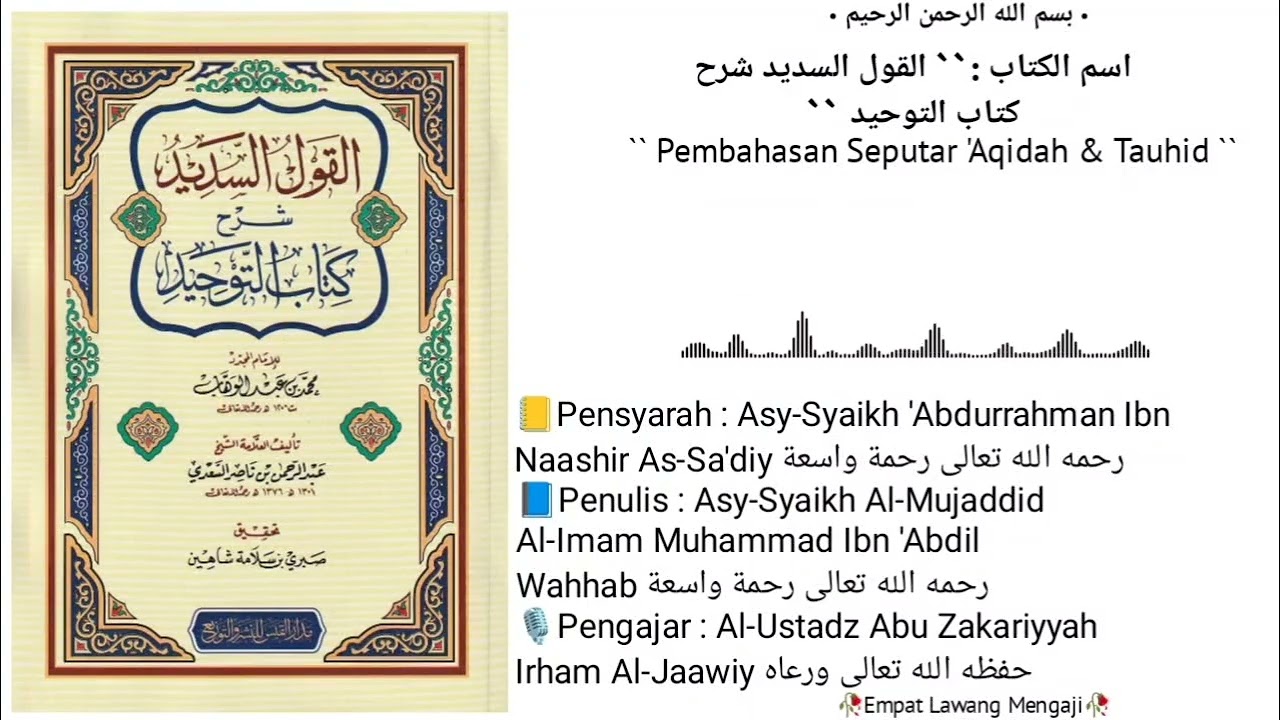 القول السديد
شرح
كتاب التوحيد
للإمام المجدد
محمد بن عبد الوهاب
ت ١٢٠٦ هـ رحمه الله تعالى
تأليف العلامة الشيخ
عبد الرحمن بن ناصر السعدي
١٣٠٧ هـ - ١٣٧٦ هـ رحمه الله تعالى
تحقيق
صبري بن سلامة شاهين
مدار القبس للنشر والتوزيع
• بسم الله الرحمن الرحيم •
اسم الكتاب :`` القول السديد شرح
كتاب التوحيد ``
`` Pembahasan Seputar 'Aqidah & Tauhid ``
📒Pensyarah : Asy-Syaikh 'Abdurrahman Ibn
Naashir As-Sa'diy رحمه الله تعالى رحمة واسعة
📘Penulis : Asy-Syaikh Al-Mujaddid
Al-Imam Muhammad Ibn 'Abdil
Wahhab رحمه الله تعالى رحمة واسعة
🎙️Pengajar : Al-Ustadz Abu Zakariyyah
Irham Al-Jaawiy حفظه الله تعالى ورعاه
🥀Empat Lawang Mengaji🥀